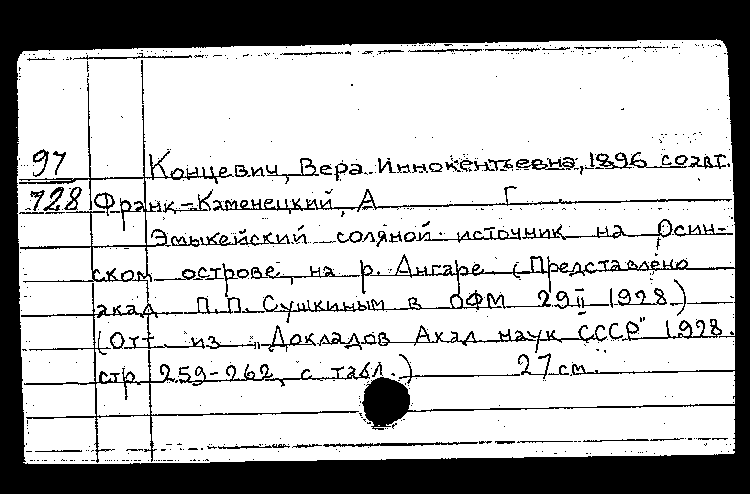 97 Концевич, Вера Иннокентьевна, 1896 соавт.
728 Франк-Каменецкий, А Г
Эмыкейский соляной источник на Осин-
ском острове, на р. Ангаре (Представлено
акад П.П. Сушкиным в ОФМ 29 II 1928.)
(Отт. из „Докладов Акад наук СССР" 1928.
стр 259-262, с табл.) 27 см.